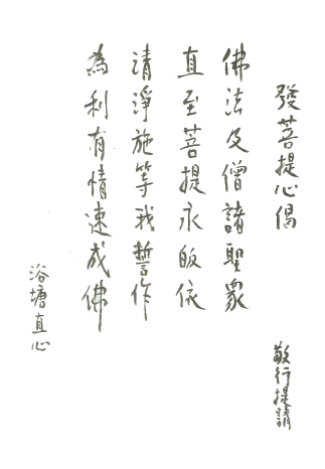 發菩提心偈
敬行提請
佛法及僧諸聖衆
直至菩提永皈依
清淨施等我誓作
為利有情速成佛
浴塘直心